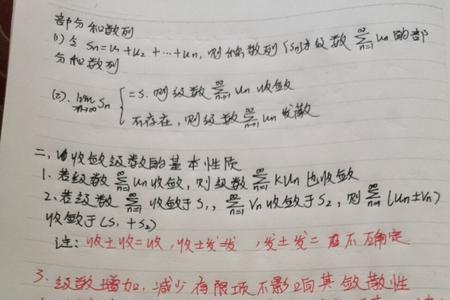 部分和数列
(1) 令 Sn = u1 + u2 + … + un, 则称数列{Sn}为级数 ∑(n=1→∞) un 的部
分和数列
(2). lim(n→∞) Sn { = S. 则级数 ∑(n=1→∞) un 收敛
不存在, 则级数 ∑(n=1→∞) un 发散
二、收敛级数的基本性质
1. 若级数 ∑(n=1→∞) un 收敛, 则级数 ∑(n=1→∞) kun 也收敛
2. 若级数 ∑(n=1→∞) 收敛于 S1, ∑(n=1→∞) Vn 收敛于 S2, 则 ∑(n=1→∞) (un ± Vn)
收敛于 (S1 + S2)
注: 收±收=收, 收±发=发, 发±发= 不确定
3. 级数增加, 减少有限项不影响其敛散性